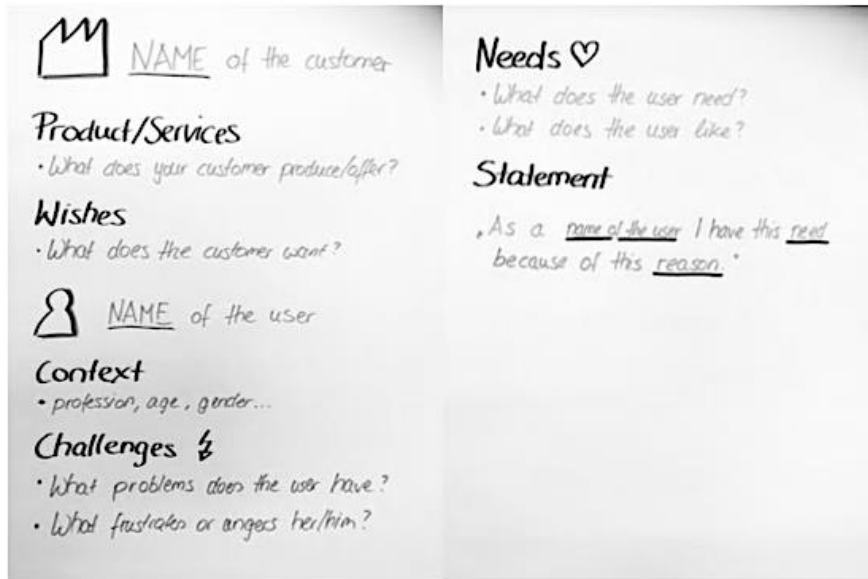 NAME of the customer
Product/Services
• What does your customer produce/offer?
Wishes
• What does the customer want?
NAME of the user
Context
• profession, age, gender...
Challenges
• What problems does the user have?
• What frustrates or angers her/him?
Needs ♡
• What does the user need?
• What does the user like?
Statement
"As a name of the user I have this need
because of this reason."